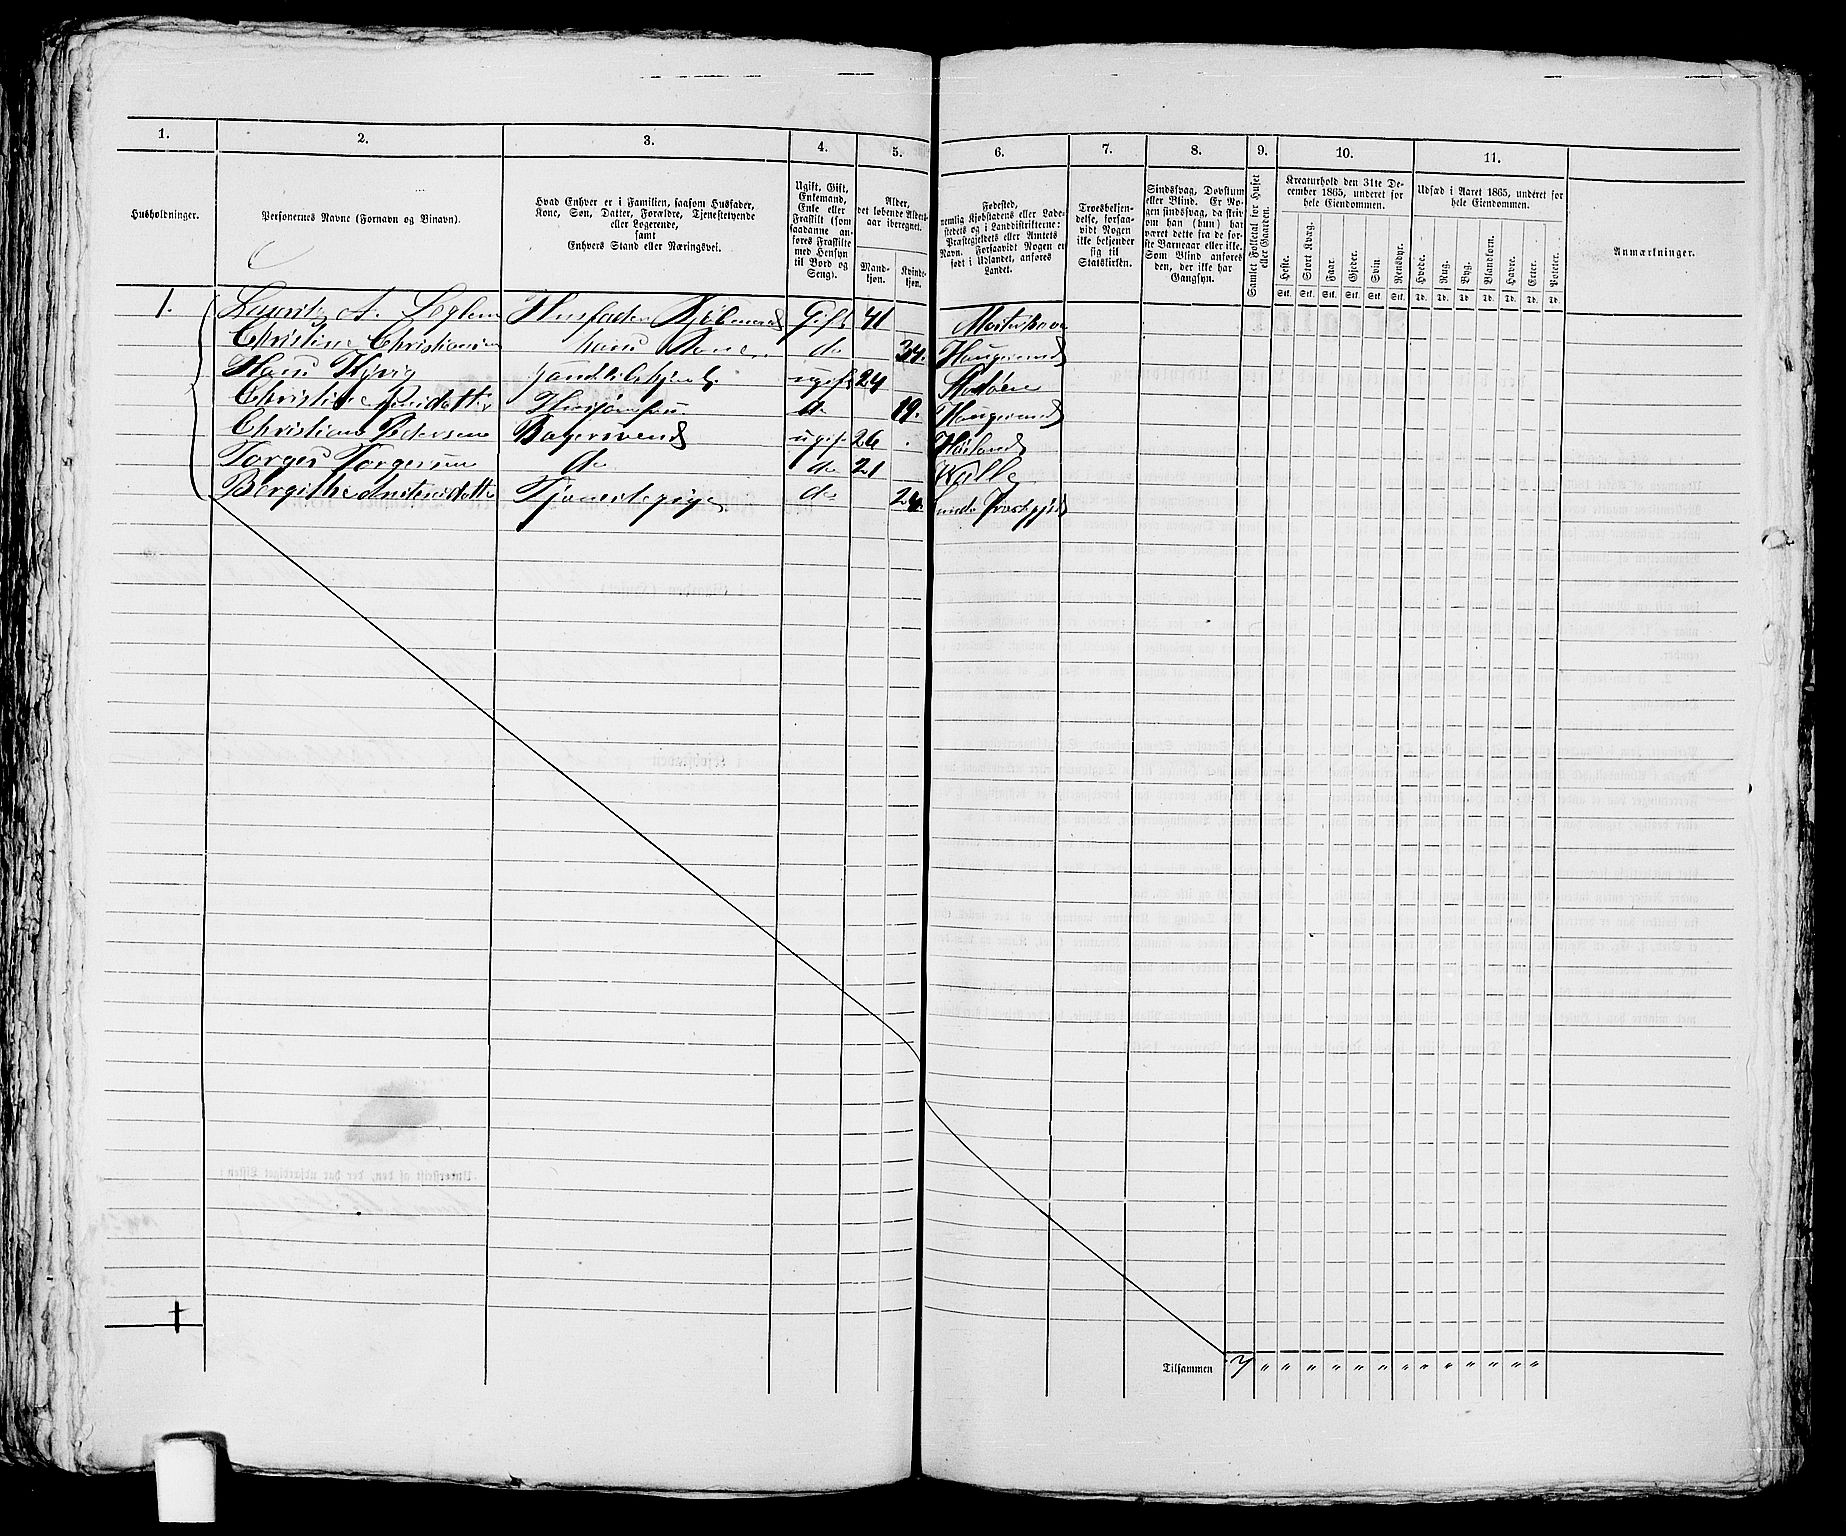 1. 2. 3. 4. 5. 6. 7. 8. 9. 10. 11.
Husholdninger.
Personernes Navne (Fornavn og Binavn).
Hvad Enhver er i Familien, saasom Husfader,
Kone, Søn, Datter, Forældre, Tjenestetyende
eller Logerende,
samt
Enhvers Stand eller Næringsvei.
Ugift, Gift,
Enkemand,
Enke eller
Fraskilt (som
saadanne an-
føres Fraskilte
med Hensyn
til Bord og
Seng).
Alder,
det løbende Alders-
aar iberegnet.
Mand-
kjøn.
Kvinde-
kjøn.
Fødested,
nemlig Kjøbstadens eller Lade-
stedets og i Landdistrikterne:
Præstegjeldets eller Amtets
Navn. Forsaavidt Nogen er
født i Udlandet, anføres
Landet.
Troesbekjen-
delse, forsaa-
vidt Nogen
ikke bekjender
sig til
Statskirken.
Sindssvag, Døvstum
eller Blind. Er No-
gen sindssvag, da skriv
om han (hun) har
været dette fra de før-
ste Barneaar eller ikke.
Som Blind anføres
den, der ikke har
Gangsyn.
Samlet Folketal for Huset
eller Gaarden.
Kreaturhold den 31te De-
cember 1865, underet for
hele Eiendommen.
Heste. Stort Kvæg. Faar. Gjeder. Svin. Rensdyr.
Stk. Stk. Stk. Stk. Stk. Stk.
Udsæd i Aaret 1865, underet for
hele Eiendommen.
Hvede. Rug. Byg. Blandkorn. Havre. Erter. Poteter.
Td. Td. Td. Td. Td. Td. Td.
Anmærkninger.
1. Lauritz A. Husfader Gift 41
Christine Christiansen hans Kone d. 34. Haugesund
Hans ugift 24
Christine 19. Haugesund
Christian Pedersen Bagersvend ugift 26 Høiland
Torger Torgersen do d. 21 Walle
Bergithe Tjenestepige d. 24.
Tilsammen 7 " " " " " " " " " " " "